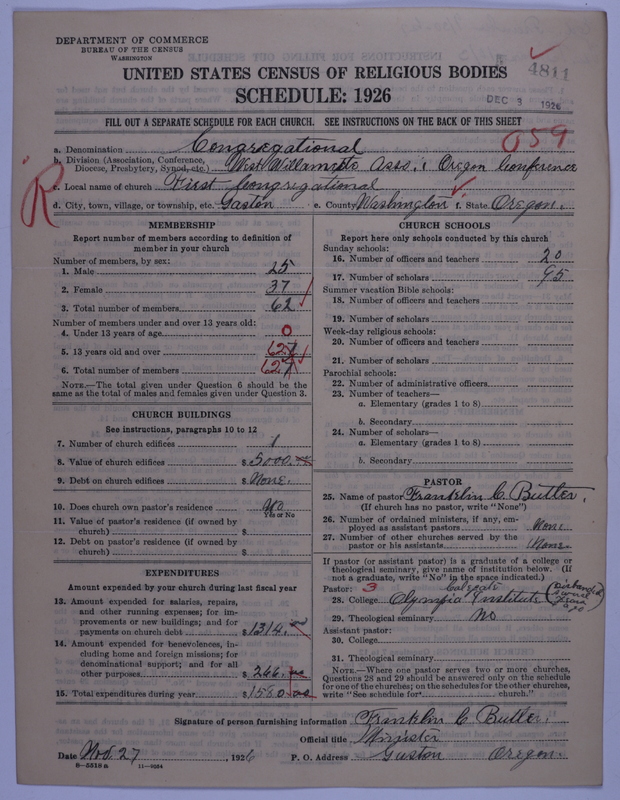 DEPARTMENT OF COMMERCE
BUREAU OF THE CENSUS
WASHINGTON
4811
UNITED STATES CENSUS OF RELIGIOUS BODIES
SCHEDULE: 1926
DEC 3 1926
FILL OUT A SEPARATE SCHEDULE FOR EACH CHURCH. SEE INSTRUCTIONS ON THE BACK OF THIS SHEET
059
a. Denomination Congregational
b. Division (Association, Conference,
Diocese, Presbytery, Synod, etc.) West Willamette Asso. & Oregon Conference
R
c. Local name of church First Congregational
d. City, town, village, or township, etc. Gaston e. County Washington f. State Oregon.
MEMBERSHIP
Report number of members according to definition of
member in your church
Number of members, by sex:
1. Male 25
2. Female 37
3. Total number of members 62
Number of members under and over 13 years old:
4. Under 13 years of age 0
5. 13 years old and over 62
6. Total number of members 62
NOTE.—The total given under Question 6 should be the
same as the total of males and females given under Question 3.
CHURCH BUILDINGS
See instructions, paragraphs 10 to 12
7. Number of church edifices 1
8. Value of church edifices $ 5000.
9. Debt on church edifices $ None.
10. Does church own pastor's residence No
Yes or No
11. Value of pastor's residence (if owned by
church) $
12. Debt on pastor's residence (if owned by
church) $
EXPENDITURES
Amount expended by your church during last fiscal year
13. Amount expended for salaries, repairs,
and other running expenses; for im-
provements or new buildings; and for
payments on church debt $ 1314.
14. Amount expended for benevolences, in-
cluding home and foreign missions; for
denominational support; and for all
other purposes $ 266.
15. Total expenditures during year $ 1580
CHURCH SCHOOLS
Report here only schools conducted by this church
Sunday schools:
16. Number of officers and teachers 20
17. Number of scholars 95
Summer vacation Bible schools:
18. Number of officers and teachers
19. Number of scholars
Week-day religious schools:
20. Number of officers and teachers
21. Number of scholars
Parochial schools:
22. Number of administrative officers
23. Number of teachers—
a. Elementary (grades 1 to 8)
b. Secondary
24. Number of scholars—
a. Elementary (grades 1 to 8)
b. Secondary
PASTOR
25. Name of pastor Franklin C. Butler.
(If church has no pastor, write "None")
26. Number of ordained ministers, if any, em-
ployed as assistant pastors None
27. Number of other churches served by the
pastor or his assistants None
If pastor (or assistant pastor) is a graduate of a college or
theological seminary, give name of institution below. (If
not a graduate, write "No" in the space indicated.)
Pastor: 3 Colgate
28. College Olympia Institute
29. Theological seminary No
Assistant pastor:
30. College
31. Theological seminary
NOTE.—Where one pastor serves two or more churches,
Questions 28 and 29 should be answered only on the schedule
for one of the churches; on the schedules for the other churches,
write "See schedule for church."
Signature of person furnishing information Franklin C. Butler.
Official title Minister
Date Nov. 27, 1926 P. O. Address Gaston Oregon.
8—5519 a 11—9264